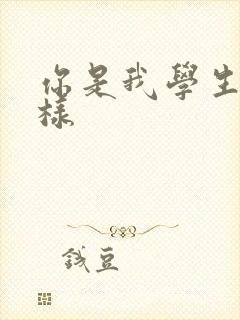 你是我學生
樣
錢豆